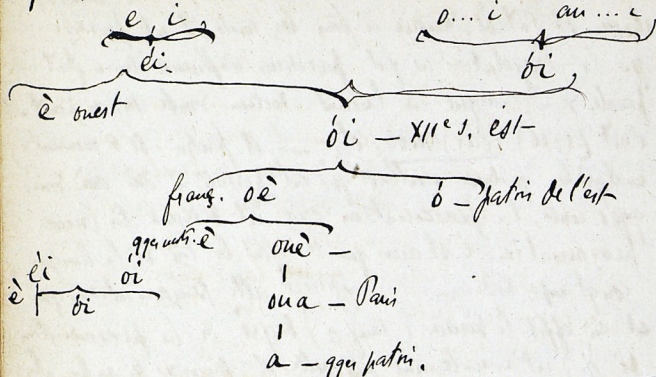 e, i o....i au...i
éi ói
è ouest
ói — XIIe s. est
franç. oè ó — patois de l'est
qques mots. è ouè —
éi ói
è ói oua — Paris
a — qques patois.